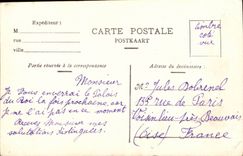 Expéditeur :
CARTE POSTALE
POSTKAART
timbre
coté
vue
Partie réservée à la correspondance
Adresse du destinataire :
Monsieur
Je vous enverrai le Palais
du Roi la fois prochaine, car
je ne l'ai pas en ce moment
Recevez Monsieur mes
salutations distinguées.
Mr Jules Dobrenel
155 rue de Paris
Voisinlieu-près Beauvais
(Oise) France